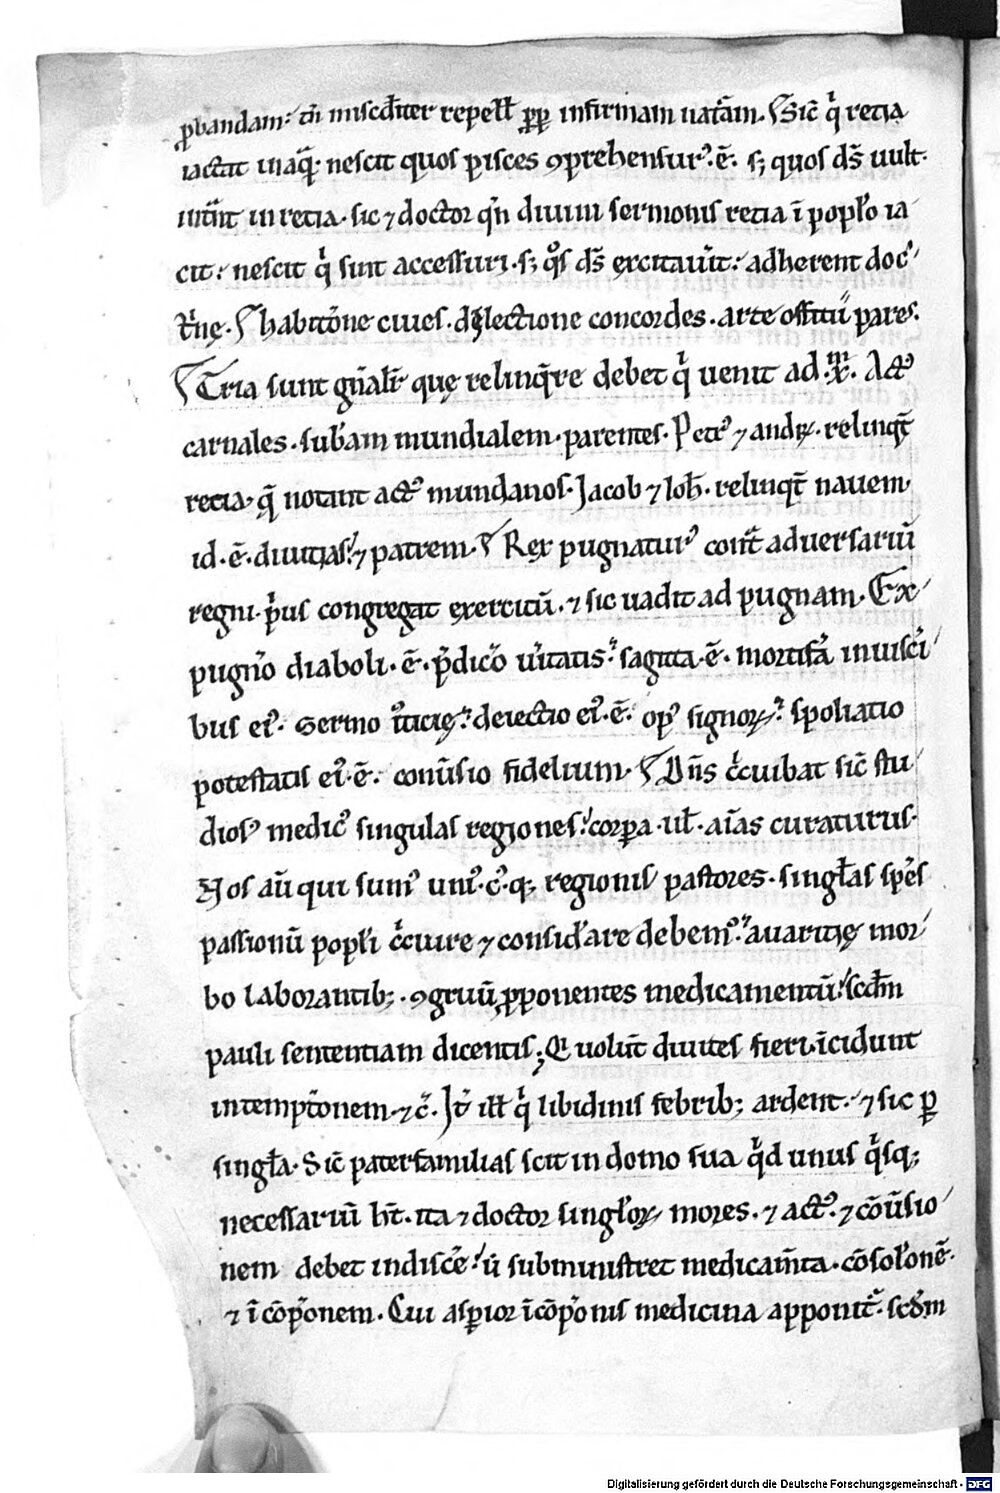 ꝓbandam: tn̄ misc̄d̄iter repell̄t ꝓp̄ infirmam nat̄am. Sic̄ qͥ retia
iactat in aq̄: nescit quos pisces ꝯprehensur᷒. ē. sꝫ quos dn̄s uult
int̄nt in retia. sic ⁊ doctor qn̄ diuini sermonis retia ī popl̄o ia
cit: nescit qͥ sint accessuri. sꝫ qͦs ds̄ excitauit̄: adherent doc
tͥnę. habitōne ciues. dilectione concordes. arte offitii pares.
Tria sunt gn̄alit̄ quę relinq̄re debet qͥ uenit ad xm̄. Act᷒
carnales. sub̄am mundialem. parentes. Petr᷒ ⁊ andr̄. relinq̄t
retia. q̄ notant act᷒ mundanos. Jacob ⁊ Ioh̄. relinq̄t nauem
id. ē. diuitias: ⁊ patrem. Rex pugnatur᷒ cont̄ aduersariū
regni. pͥus congregat exercitū. ⁊ sic uadit ad pugnam. Ex
pugnͦo diaboli. ē. p̄dicͦo ueritatis: sagitta. ē. mortifa inuisci
bus ei᷒. sermo iͦticię: deiectio ei᷒. ē. op᷒ signoꝝ: spoliatio
potestatis ei᷒. ē: conūsio fidelium. Dn̄s cͥcuibat sic̄ stu
dios᷒ medic᷒ singulas regiones: corꝑa. ul̄. aīas curaturus.
Nos aū qui sum᷒ uni᷒. c᷒. qꝫ regionis pastores. singl̄as spēs
passionū popl̄i cͥcuire ⁊ considāre debem᷒: auaritię mor
bo laborantibꝫ. ꝯgruū ꝓponentes medicamentū: scd̄m
pauli sententiam dicentis; Qi uolūt diuites fieri. īcidunt
intemptōnem. ⁊ c̄. It̄ ill̄ qͥ libidinis febribꝫ ardent: ⁊ sic ꝑ
singl̄a. Sic̄ paterfamilias scit in domo sua qͥd unus qͥsqꝫ
necessariū hn̄t. ita ⁊ doctor singl̄oꝝ mores. ⁊ act᷒. ⁊ cōūsio
nem debet indiscē: ū subministret medicam̄ta. cōsolͦonē.
⁊ īcōpͦonem. Cui asꝑior īcōpͦonis medicina apponit᷒. scd̄m
Digitalisierung gefördert durch die Deutsche Forschungsgemeinschaft - DFG